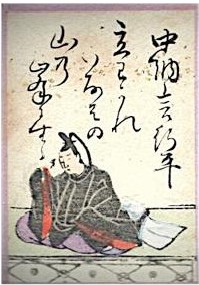 中納言行平
立わかれ
いなはの
山乃
峯に